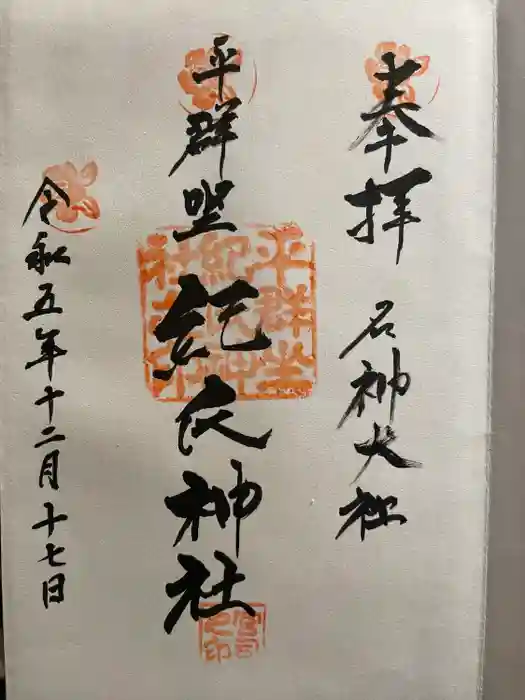 奉拝
名神大社
平群坐
紀氏神社
令和五年十二月十七日
平群坐
紀氏神
社之印
宮司
之印